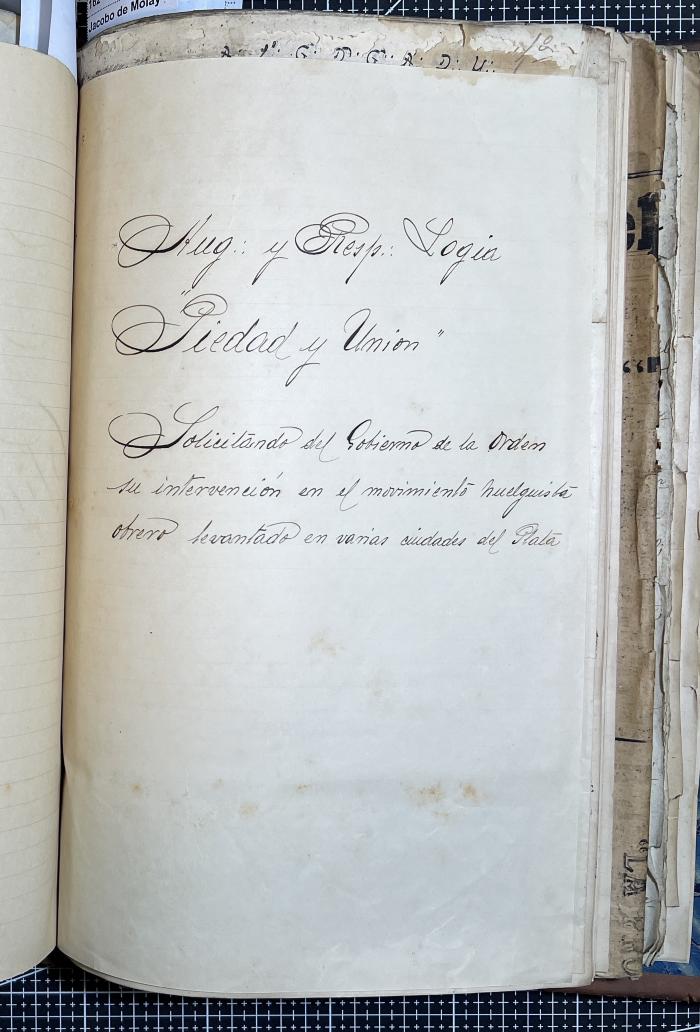 162
Jacobo de Molay
A.: L.: G.: D.: G.: A.: D.: U.:
Aug.: y Resp.: Logia
"Piedad y Union"
Solicitando del Gobierno de la Orden
su intervención en el movimiento huelguista
obrero levantado en varias ciudades del Plata